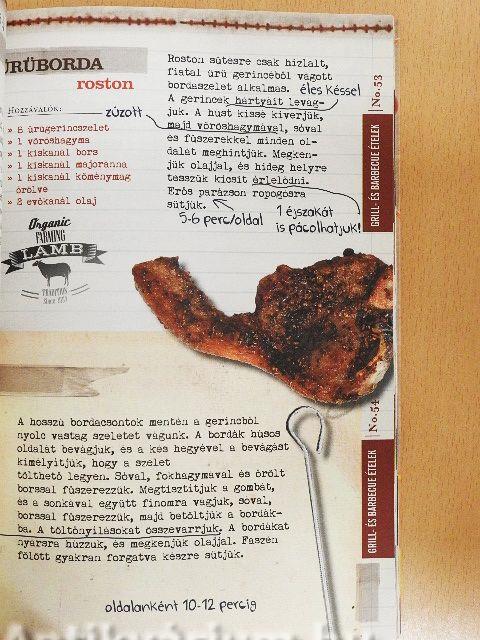 ÜRÜBORDA
roston
Hozzávalók:
» 8 ürügerincszelet
» 1 vöröshagyma
» 1 kiskanál bors
» 1 kiskanál majoranna
» 1 kiskanál köménymag
őrölve
» 2 evőkanál olaj
zúzott
Roston sütésre csak hizlalt,
fiatal ürü gerincéből vágott
bordaszelet alkalmas.
éles késsel
A gerincek hártyáit levág-
juk. A húst kissé kiverjük,
majd vöröshagymával, sóval
és fűszerekkel minden ol-
dalát meghintjük. Megken-
jük olajjal, és hideg helyre
tesszük kicsit érlelődni.
Erős parázson ropogósra
sütjük.
5-6 perc/oldal
1 éjszakát
is pácolhatjuk!
No.53
GRILL- ÉS BARBECUE ÉTELEK
Organic
FARMING
LAMB
TRADITIONS
Since 1957
A hosszú bordacsontok mentén a gerincből
nyolc vastag szeletet vágunk. A bordák húsos
oldalát bevágjuk, és a kés hegyével a bevágást
kimélyítjük, hogy a szelet
tölthető legyen. Sóval, fokhagymával és őrölt
borssal fűszerezzük. Megtisztítjuk a gombát,
és a sonkával együtt finomra vágjuk, sóval,
borssal fűszerezzük, majd betöltjük a bordák-
ba. A töltőnyílásokat összevarrjuk. A bordákat
nyársra húzzuk, és megkenjük olajjal. Faszén
fölött gyakran forgatva készre sütjük.
oldalanként 10-12 percig
No.54
GRILL- ÉS BARBECUE ÉTELEK